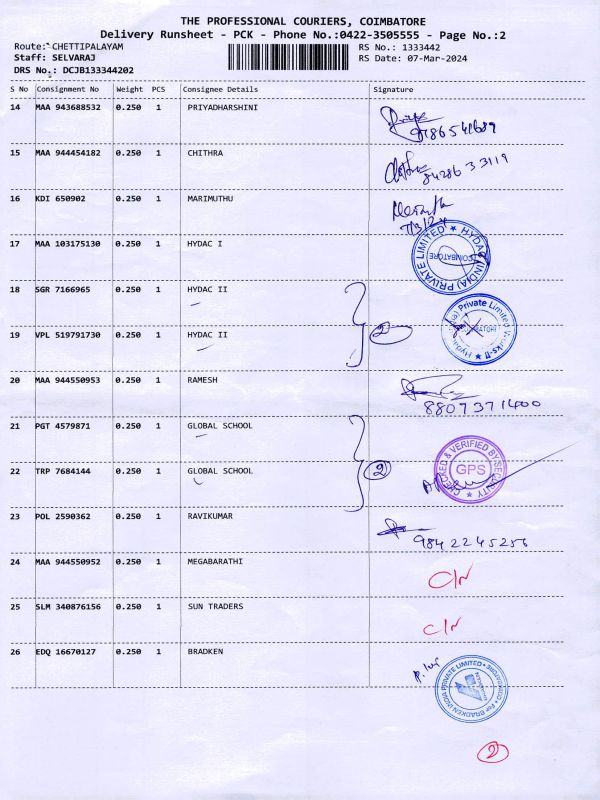 THE PROFESSIONAL COURIERS, COIMBATORE
Delivery Runsheet - PCK - Phone No.:0422-3505555 - Page No.:2
Route: CHETTIPALAYAM RS No.: 1333442
Staff: SELVARAJ RS Date: 07-Mar-2024
DRS No.: DCJB133344202
S No Consignment No Weight PCS Consignee Details Signature
14 MAA 943688532 0.250 1 PRIYADHARSHINI
15 MAA 944454182 0.250 1 CHITHRA
8428633119
16 KDI 650902 0.250 1 MARIMUTHU
7/3/24
17 MAA 103175130 0.250 1 HYDAC I
HYDAC (INDIA) PRIVATE LIMITED
COIMBATORE
18 SGR 7166965 0.250 1 HYDAC II
2
19 VPL 519791730 0.250 1 HYDAC II
Private Limited Works-II
20 MAA 944550953 0.250 1 RAMESH
8807371400
21 PGT 4579871 0.250 1 GLOBAL SCHOOL
2
22 TRP 7684144 0.250 1 GLOBAL SCHOOL
CHECKED & VERIFIED BY SECURITY
GPS
23 POL 2590362 0.250 1 RAVIKUMAR
9842245256
24 MAA 944550952 0.250 1 MEGABARATHI
C/N
25 SLM 340876156 0.250 1 SUN TRADERS
C/N
26 EDQ 16670127 0.250 1 BRADKEN
For BRADKEN INDIA PRIVATE LIMITED
2